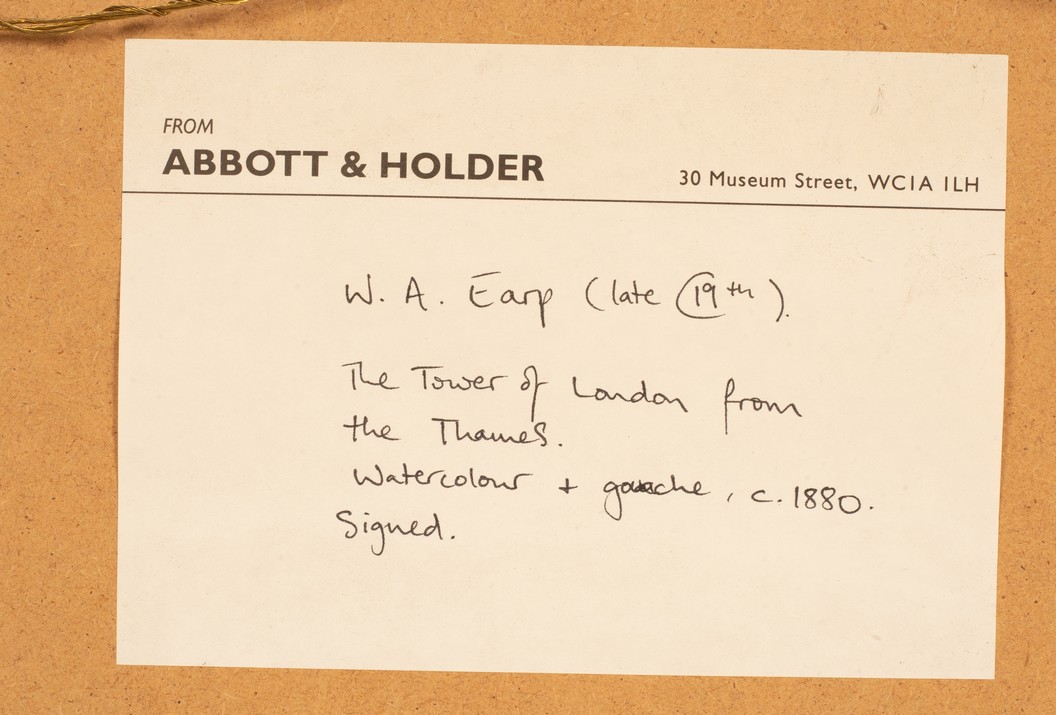 FROM
ABBOTT & HOLDER
30 Museum Street, WC1A 1LH
W. A. Earp (late 19th).
The Tower of London from
the Thames.
Watercolour + gouache, c. 1880.
Signed.